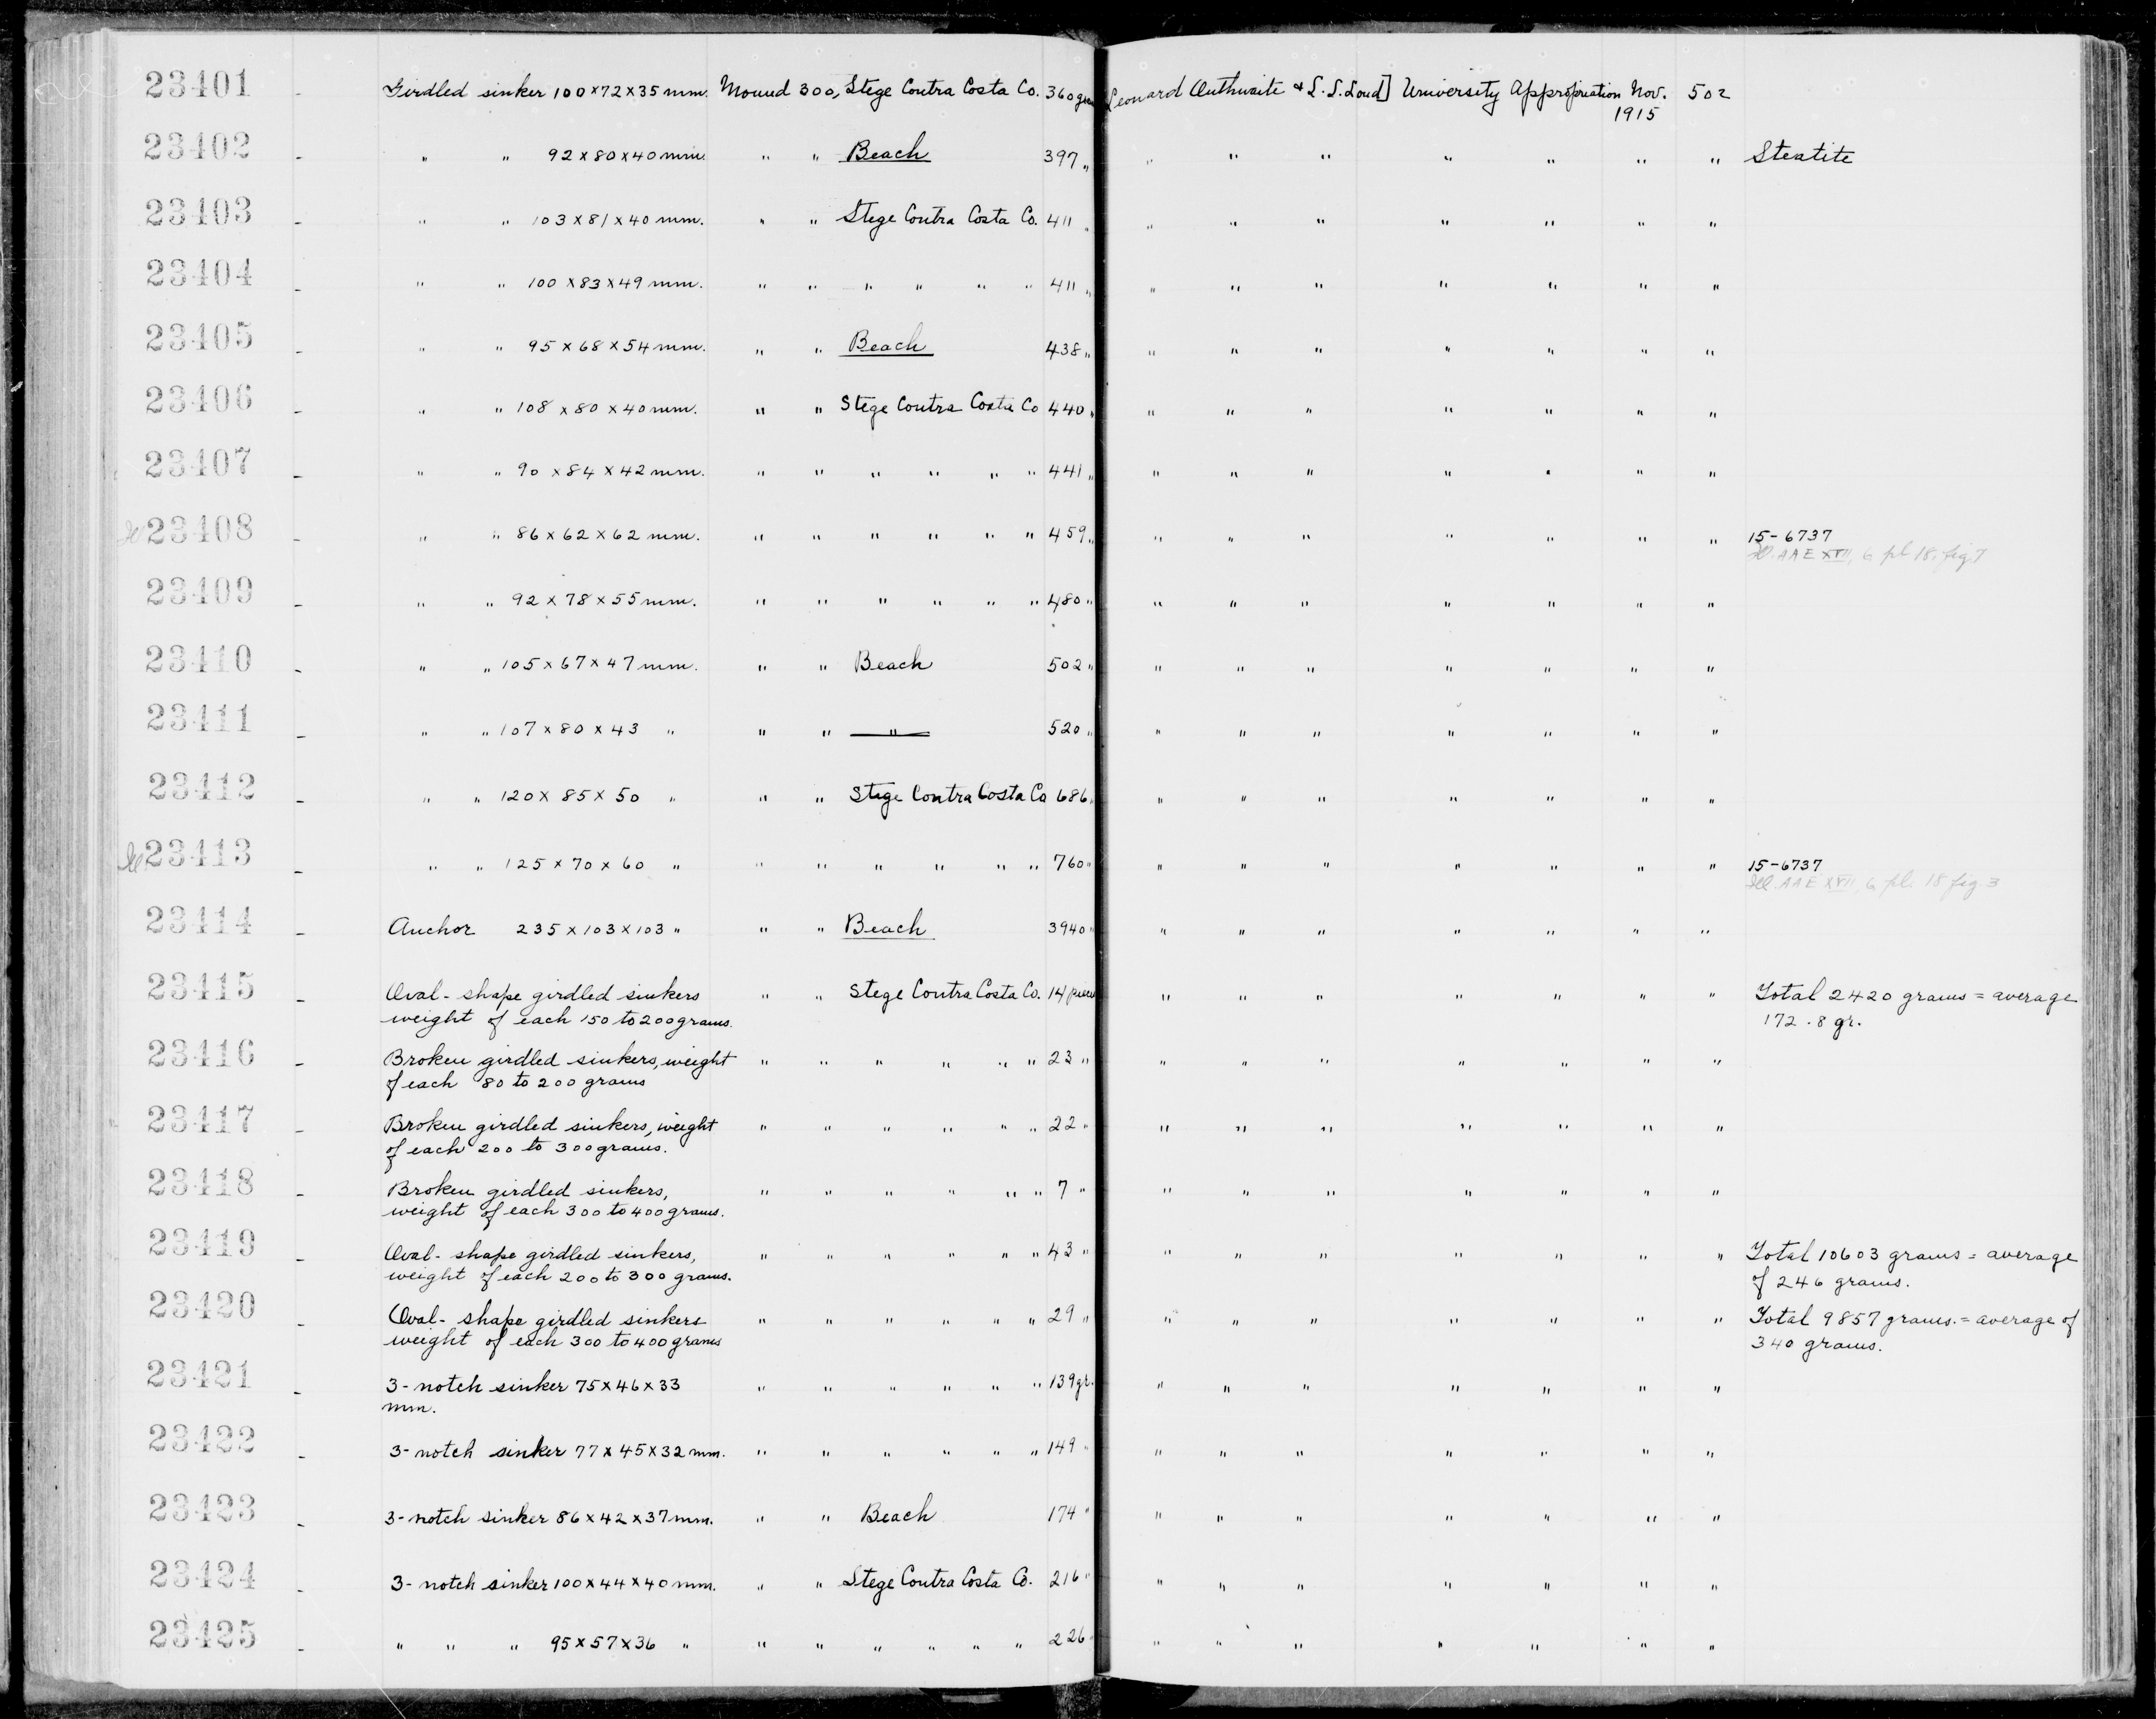 23401 - Girdled sinker 100×72×35 mm. Mound 300, Stege Contra Costa Co. 360 Leonard Outhwaite & L.L.Loud] University Appropriation Nov. 1915 502
23402 - " " 92×80×40 mm. " " Beach 397 " " " " " " " " Steatite
23403 - " " 103×81×40 mm. " " Stege Contra Costa Co. 411 " " " " " " " "
23404 - " " 100×83×49 mm. " " " " " " 411 " " " " " " " "
23405 - " " 95×68×54 mm. " " Beach 438 " " " " " " " "
23406 - " " 108×80×40 mm. " " Stege Contra Costa Co 440 " " " " " " " "
23407 - " " 90×84×42 mm. " " " " " " 441 " " " " " " " "
Ill 23408 - " " 86×62×62 mm. " " " " " " 459 " " " " " " " " 15-6737
Ill. AAE XVII, 6 pl 18, fig 7
23409 - " " 92×78×55 mm. " " " " " " 480 " " " " " " " "
23410 - " " 105×67×47 mm. " " Beach 502 " " " " " " " "
23411 - " " 107×80×43 " " " " 520 " " " " " " " "
23412 - " " 120×85×50 " " " Stege Contra Costa Co 686 " " " " " " " "
Ill 23413 - " " 125×70×60 " " " " " " " 760 " " " " " " " " 15-6737
Ill. AAE XVII, 6, pl. 18 fig. 3
23414 - Anchor 235×103×103 " " " Beach 3940 " " " " " " " "
23415 - Oval-shape girdled sinkers " " Stege Contra Costa Co. 14 pieces " " " " " " " Total 2420 grams = average
weight of each 150 to 200 grams. 172.8 gr.
23416 - Broken girdled sinkers, weight " " " " " " 23 " " " " " " " "
of each 80 to 200 grams
23417 - Broken girdled sinkers, weight " " " " " " 22 " " " " " " " "
of each 200 to 300 grams.
23418 - Broken girdled sinkers, " " " " " " 7 " " " " " " " "
weight of each 300 to 400 grams.
23419 - Oval-shape girdled sinkers, " " " " " " 43 " " " " " " " " Total 10603 grams = average
weight of each 200 to 300 grams. of 246 grams.
23420 - Oval-shape girdled sinkers " " " " " " 29 " " " " " " " " Total 9857 grams. = average of
weight of each 300 to 400 grams 340 grams.
23421 - 3-notch sinker 75×46×33 " " " " " " 139 gr. " " " " " " "
mm.
23422 - 3-notch sinker 77×45×32 mm. " " " " " " 149 " " " " " " " "
23423 - 3-notch sinker 86×42×37 mm. " " Beach 174 " " " " " " " "
23424 - 3-notch sinker 100×44×40 mm. " " Stege Contra Costa Co. 216 " " " " " " " "
23425 - " " " 95×57×36 " " " " " " " 226 " " " " " " "